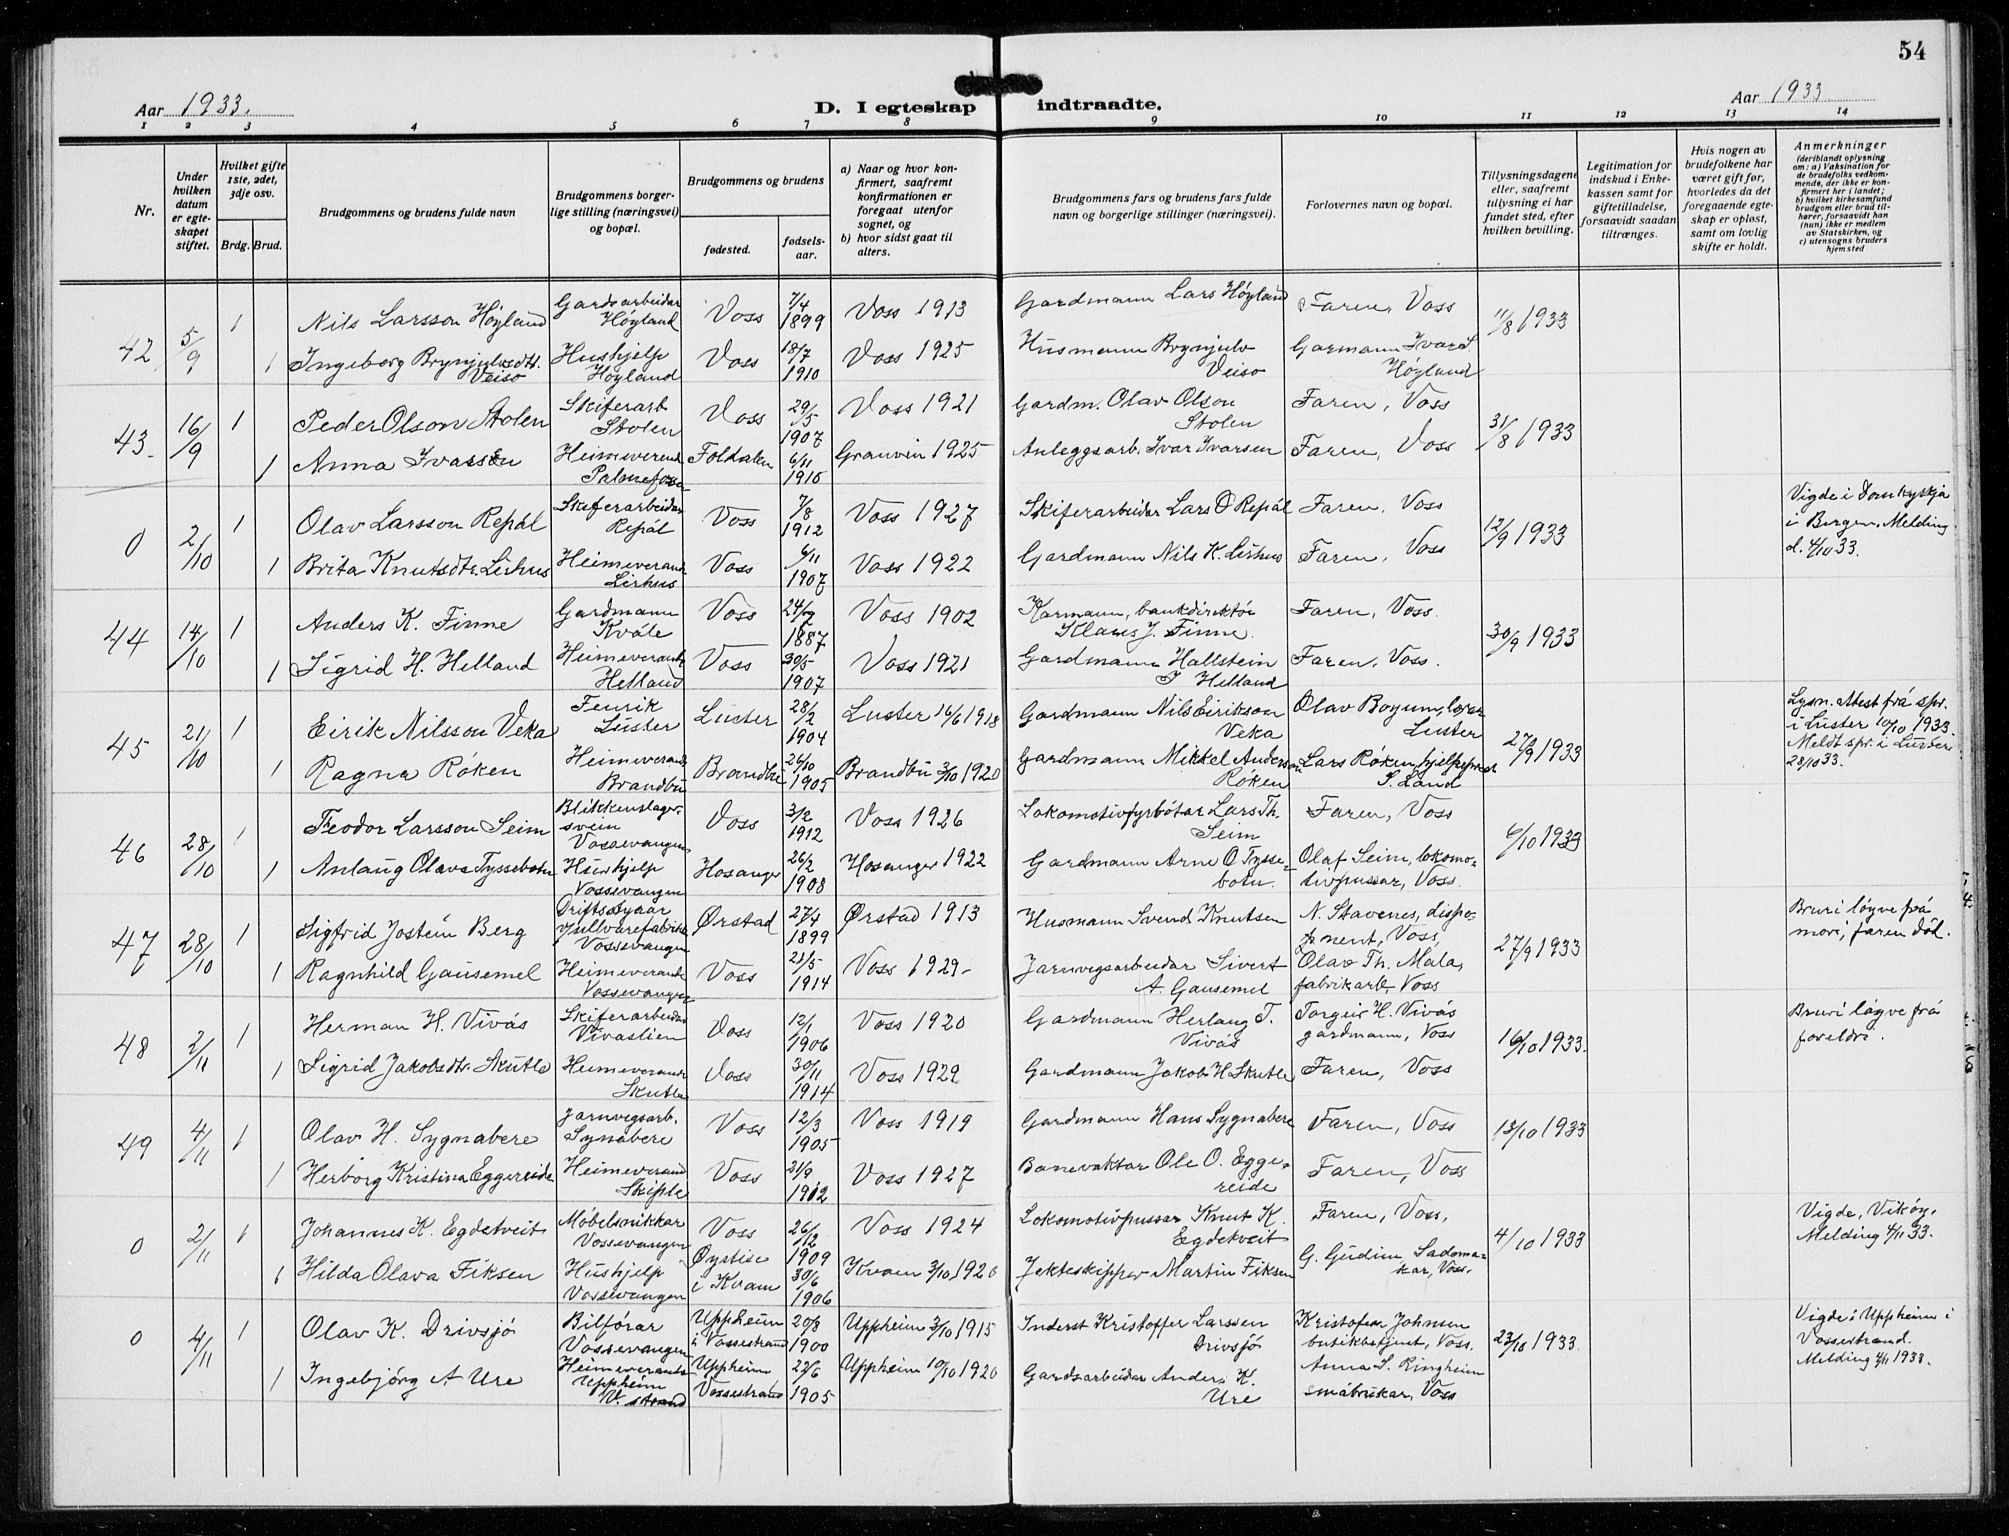 54
Aar 1933.
D. I egteskap indtraadte.
Aar 1933
1 2 3 4 5 6 7 8 9 10 11 12 13 14
Nr.
Under hvilken datum er egteskapet stiftet.
Hvilket gifte 1ste, 2det, 3dje osv.
Brdg. Brud.
Brudgommens og brudens fulde navn
Brudgommens borgerlige stilling (næringsvei) og bopæl.
Brudgommens og brudens
fødested.
fødselsaar.
a) Naar og hvor konfirmert, saafremt konfirmationen er foregaat utenfor sognet, og
b) hvor sidst gaat til alters.
Brudgommens fars og brudens fars fulde navn og borgerlige stillinger (næringsvei).
Forlovernes navn og bopæl.
Tillysningsdagene eller, saafremt tillysning ei har fundet sted, efter hvilken bevilling.
Legitimation for indskud i Enkekassen samt for giftetilladelse, forsaavidt saadan tiltrænges.
Hvis nogen av brudefolkene har været gift før, hvorledes da det foregaaende egteskap er opløst, samt om lovlig skifte er holdt.
Anmerkninger
(deriblandt oplysning om: a) Vaksination for de brudefolks vedkommende, der ikke er konfirmert her i landet; b) hvilket kirkesamfund brudgom eller brud tilhører, forsaavidt han (hun) ikke er medlem av Statskirken, og c) utensogns bruders hjemsted
42 5/9 1 Nils Larsson Høyland Gardsarbeidar Høyland Voss 7/4 1899 Voss 1913 Gardmann Lars Høyland Faren, Voss 11/8 1933
1 Ingeborg Brynjulvsdtr. Veiso Hushjelp Høyland Voss 18/7 1910 Voss 1925 Husmann Brynjulv Veiso Garmann Ivar S. Høyland
43. 16/9 1 Peder Olson Stolen Skiferarb Stolen Voss 29/5 1907 Voss 1921 Gardm. Olav Olson Stolen Faren, Voss 31/8 1933
1 Anna Ivarsen Heimeverend Palmefossen Foldalen 6/11 1910 Granvin 1925 Anleggsarb. Ivar Ivarsen Faren, Voss
0 2/10 1 Olav Larsson Repål Skiferarbeidar Repål Voss 7/8 1912 Voss 1927 Skiferarbeidar Lars O Repål Faren, Voss 12/9 1933 Vigde i Domkyrkja i Bergen. Melding d. 4/10 33.
1 Brita Knutsdtr. Lirhus Heimeverand Lirhus Voss 6/11 1907 Voss 1922 Gardmann Nils K. Lirhus Faren, Voss
44 14/10 1 Anders K. Finne Gardmann Kvåle Voss 24/2 1887 Voss 1902 Karmann, bankdirektør Klaus J. Finne. Faren, Voss. 30/9 1933
1 Sigrid H. Helland Heimeverand Helland Voss 30/5 1907 Voss 1921 Gardmann Hallstein J Helland Faren, Voss.
45 21/10 1 Eirik Nilsson Veka Fenrik Luster Luster 28/2 1904 Luster 16/6 1918 Gardmann Nils Eirikson Veka Olav Bøyum, lærar Luster 27/9 1933 Lysn. Attest frå spr. i Luster 10/10 1933. Meldt spr. i Luster 28/10 33.
1 Ragna Røken Heimeverand Brandbu Brandbu 26/10 1905 Brandbu 3/10 1920 Gardmann Mikkel Anderson Røken Lars Røken, hjelpeprest S. Land
46 28/10 1 Teodor Larsson Seim Blikkenslagersvein Vossevangen Voss 3/2 1912 Voss 1926 Lokomotivfyrbøtar Lars Th. Seim Faren, Voss 6/10 1933
1 Anlaug Olava Tyssebotn Hushjelp Vossevangen Hosanger 26/2 1908 Hosanger 1922 Gardmann Arne O Tyssebotn. Olaf Seim, lokomotivpussar, Voss.
47 28/10 1 Sigfrid Jostein Berg Driftsstyrar Vossevangen Ørstad 27/4 1899 Ørstad 1913 Husmann Svend Knutsen N. Stavenes, disponent, Voss, 27/9 1933 Bruri løyve frå mori; faren død.
1 Ragnhild Gausemel Heimeverande Vossevangen Voss 21/5 1914 Voss 1929- Jarnvegsarbeidar Sivert A. Gausemel Olav Th. Mala, fabrikarb, Voss
48 3/11 1 Herman H. Vivås Skiferarbeidar Vivaslien Voss 12/1 1906 Voss 1920 Gardmann Herlaug T. Vivås Torgeir H. Vivås gardmann, Voss 16/10 1933. Bruri løyve frå foreldri.
1 Sigrid Jakobsdtr. Skutle Heimeverande Skutle Voss 30/11 1914 Voss 1929 Gardmann Jakob H Skutle Faren, Voss
49 4/11 1 Olav H. Sygnabere Jarnvegsarb. Synabere Voss 12/3 1905 Voss 1919 Gardmann Hans Sygnabere Faren, Voss 13/10 1933
1 Herborg Kristina Eggereide Heimeverand Skiple Voss 21/9 1912 Voss 1927 Banevaktar Ole O. Eggereide Faren, Voss
0 2/11 1 Johannes K. Egdetveit Møbelsnikkar Vossevangen Voss 26/12 1909 Voss 1924 Lokomotivpussar Knut K. Egdetveit Faren, Voss, 4/10 1933 Vigde, Vikøy, Melding 4/11 33.
1 Hilda Olava Fiksen Hushjelp Vossevangen Øystese i Kvam 30/6 1906 Kvam 3/10 1920 Jekteskipper Martin Fiksen G. Gudim Sadomakar, Voss.
0 4/11 1 Olav K. Drivsjø Bilførar Vossevangen Uppheim i Vossestrand 20/8 1900 Uppheim 3/10 1915 Inderst Kristoffer Larssen Drivsjø Kristofer Johnsen butikbetjent, Voss. 23/10 1933. Vigde i Uppheim i Vossestrand. Melding 4/11 1933.
1 Ingebjørg A Ure Heimeverande Uppheim V. strand Uppheim Vossestrand 22/6 1905 Uppheim 10/10 1920 Gardsarbeidar Anders K. Ure Anna S. Ringheim småbrukar, Voss